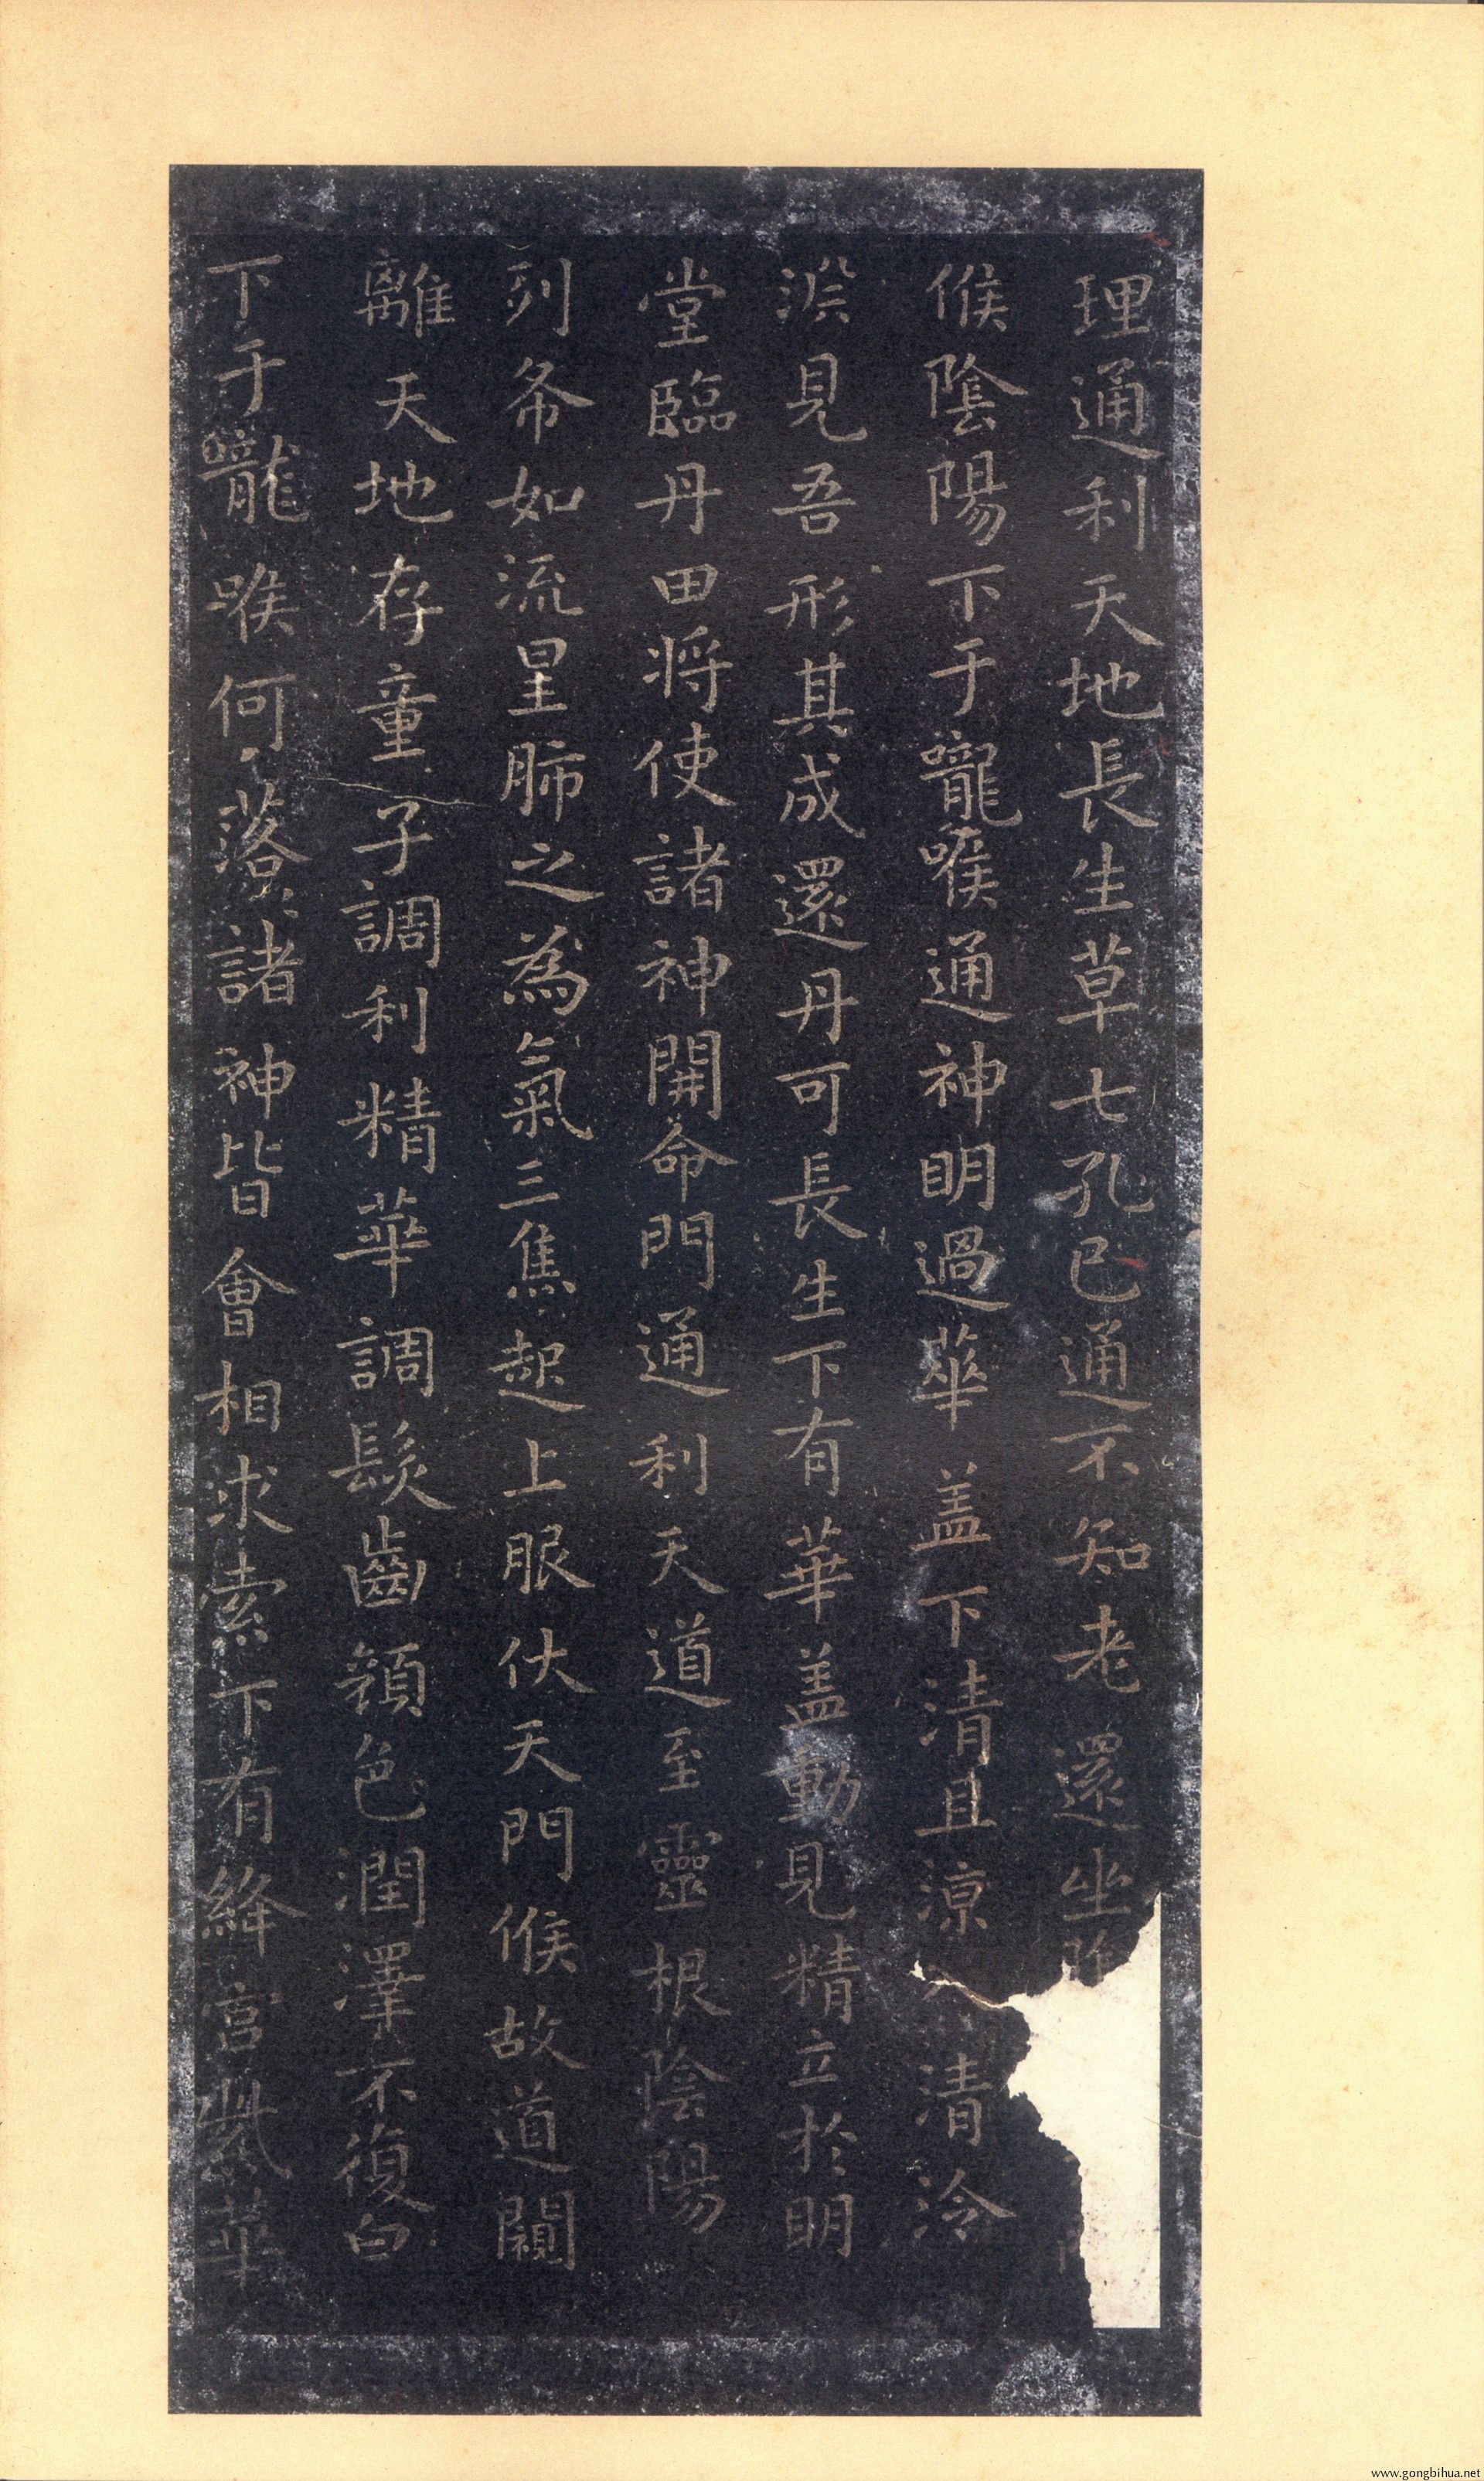 理通利天地長生草七孔已通不知老還坐陰
候陰陽下于嚨喉通神明過華盖下清且涼清泠
淵見吾形其成還丹可長生下有華盖動見精立於明
堂臨丹田將使諸神開命門通利天道至靈根陰陽
列布如流星肺之為氣三焦起上服伏天門候故道闚
離天地存童子調利精華調髮齒顏色潤澤不復白
下于嚨喉何落落諸神皆會相求索下有絳宮紫華
www.gongbihua.net